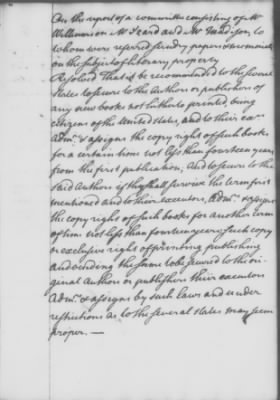 On the report of a committee consisting of Mr
Williamson Mr Izard and Mr Maddison, to
whom were referred sundry papers & memorials
on the subject of literary property
Resolved That it be recommended to the several
states to secure to the authors or publishers of
any new books not hitherto printed being
citizens of the United states, and to their exrs
admrs & assigns the copy right of such books
for a certain time not less than fourteen years
from the first publication, and to secure to the
said authors if they shall survive the term first
mentioned and to their executors, admrs & assigns
the copy right of such books for another term
of time not less than fourteen years such copy
or exclusive right of printing publishing
and vending the same to be secured to the ori-
ginal authors or publishers their executors
admrs & assigns by such laws and under
restrictions as to the several states may seem
proper. —